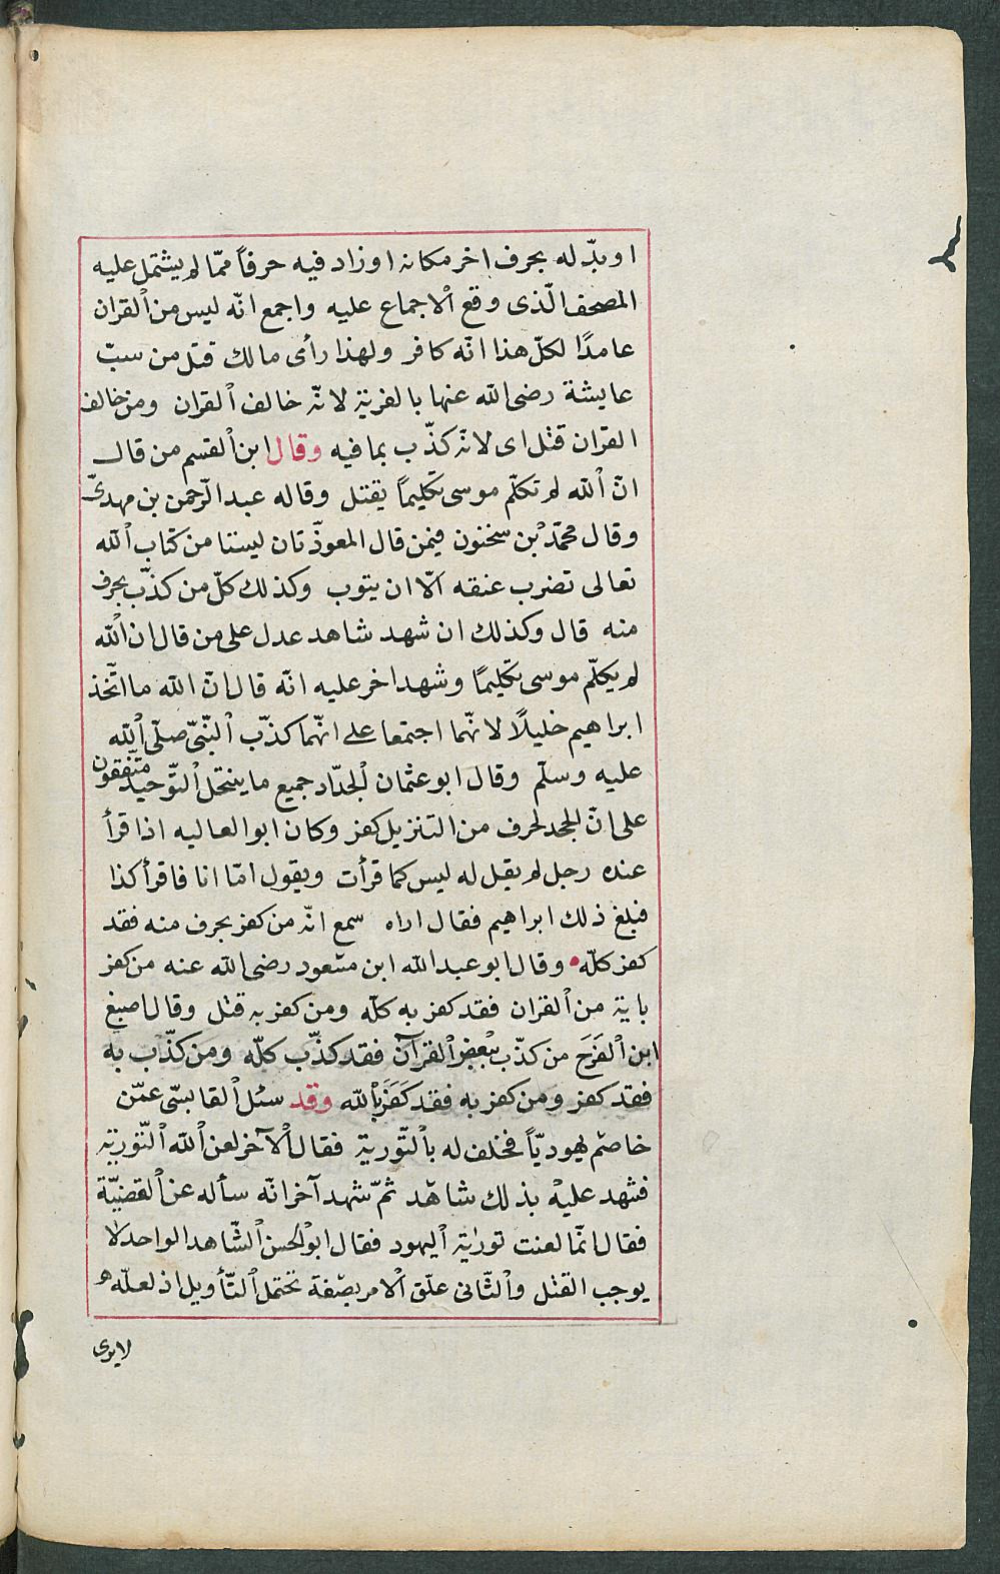 او بدّله بحرف اخر مكانه او زاد فيه حرفاً ممّا لم يشتمل عليه
المصحف الّذى وقع الاجماع عليه واجمع انّه ليس من القران
عامدًا لكلّ هذا انّه كافر ولهذا رأى مالك قتل من سبّ
عايشة رضى الله عنها بالفرية لانّه خالف القران ومن خالف
القران قتل اى لانّه كذّب بما فيه وقال ابن القسم من قال
انّ الله لم تكلّم موسى تكليماً يقتل وقاله عبد الرّحمن بن مهدىّ
وقال محمّد بن سخنون فيمن قال المعوذّتان ليستا من كتاب الله
تعالى تضرب عنقه الّا ان يتوب وكذلك كلّ من كذّب بحرف
منه قال وكذلك ان شهد شاهد عدل على من قال ان الله
لم يكلّم موسى تكليمًا وشهد اخر عليه انّه قال انّ الله ما اتّخذ
ابراهيم خليلًا لانّهما اجتمعا على انّهما كذّب النّبىّ صلّى الله
عليه وسلّم وقال ابو عثمان الحدّاد جميع ما ينتحل التّوحيد متّفقون
على انّ الجحد لحرف من التنزيل كفر وكان ابو العاليه اذا قرأ
عنده رجل لم يقل له ليس كما قرأت ويقول امّا انا فاقرأ كذا
فبلغ ذلك ابراهيم فقال اراه سمع انّه من كفر بحرف منه فقد
كفر كلّه وقال ابو عبد الله ابن مسعود رضى الله عنه من كفر
باية من القران فقد كفر به كلّه ومن كفر به قتل وقال اصبغ
ابن الفَرَح من كذّب بّبعض القرآن فقد كذّب كلّه ومن كذّب به
فقد كفر ومن كفر به فقد كَفَرَ بالله وقد سئل القابسّى عمّن
خاصم يهوديّاً فحلف له بالتّورية فقال الآخر لعن الله التّورية
فشهد عليه بذلك شاهد ثمّ شهد آخر انّه سأله عن القضيّة
فقال انّما لعنت تورٰية اليهود فقال ابو الحسن الشّاهد الواحد لا
يوجب القتل والثّانى علّق الامر بصّفة تحتمل التّأويل اذ لعلّه
لايرى